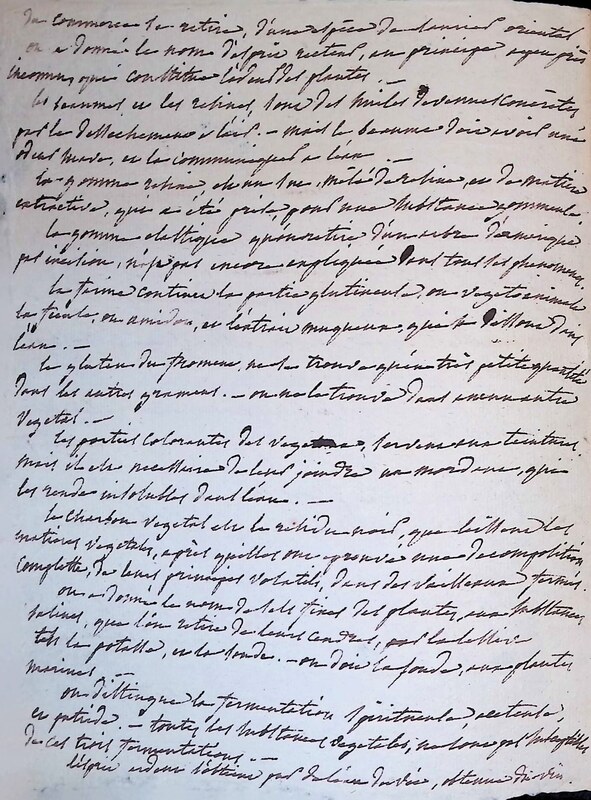 du commerce se retire, d'une espèce de laurier oriental
on a donné le nom d'esprit recteur, au principe a peu près
inconnu, qui constitue l'odeur des plantes. —
les beaumes et les résines, sont des huiles devenues concretes
par le dessechement a l'air. — mais le beaume doit avoir une
odeur suave, et la communiquer a l'eau. —
la gomme resine, est un suc, mêlé de resine, et de matiere
extractive, qui a été prise pour une substance gommeuse.
la gomme elastique qu'on retire d'un arbre d'amerique
par incision, n'est pas encore expliquée dans tous ses phenomenes.
la farine contient la partie glutineuse, ou vegeto animale
la fecule, ou amidon, et l'extrait muqueux, qui se dissout dans
l'eau. —
le gluten du froment, ne se trouve qu'en très petite quantité
dans les autres gramens. — on ne le trouve dans aucun autre
vegetal. —
les parties colorantes des servent aux teintures,
mais il est necessaire de leur joindre un mordant, qui
les rende insolubles dans l'eau. —
le charbon vegetal est le residu noir, que laissent les
matieres vegetales, après qu'elles ont eprouvé une decomposition
complette, de leurs principes volatils, dans des vaisseaux fermés.
on a donné le nom de sels fixes des plantes, aux substances
salines, que l'on retire de leurs cendres, par la lessive
tels la potasse, et la soude. — on doit la soude, aux plantes
marines —
on distingue la fermentation spiritueuse, aceteuse,
et putride. — toutes les substances vegetales, ne sont pas susceptibles
de ces trois fermentations. —
l'esprit ardent s'obtient par de l'eau de vie, obtenue du vin.